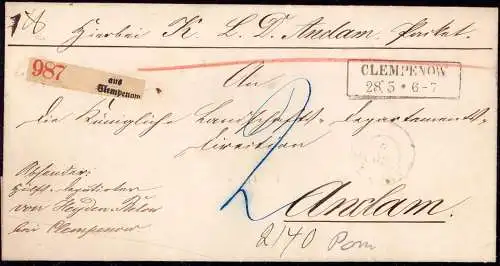 Hierbei K. L. D. Anclam. Packet.
987
aus
Clempenow
CLEMPENOW
28. 5 * 6-7
An
die Königliche Landschafts-Departements-
Direction
Anclam.
Absender:
von Heyden
bei Clempenow
2
2/40 Pom